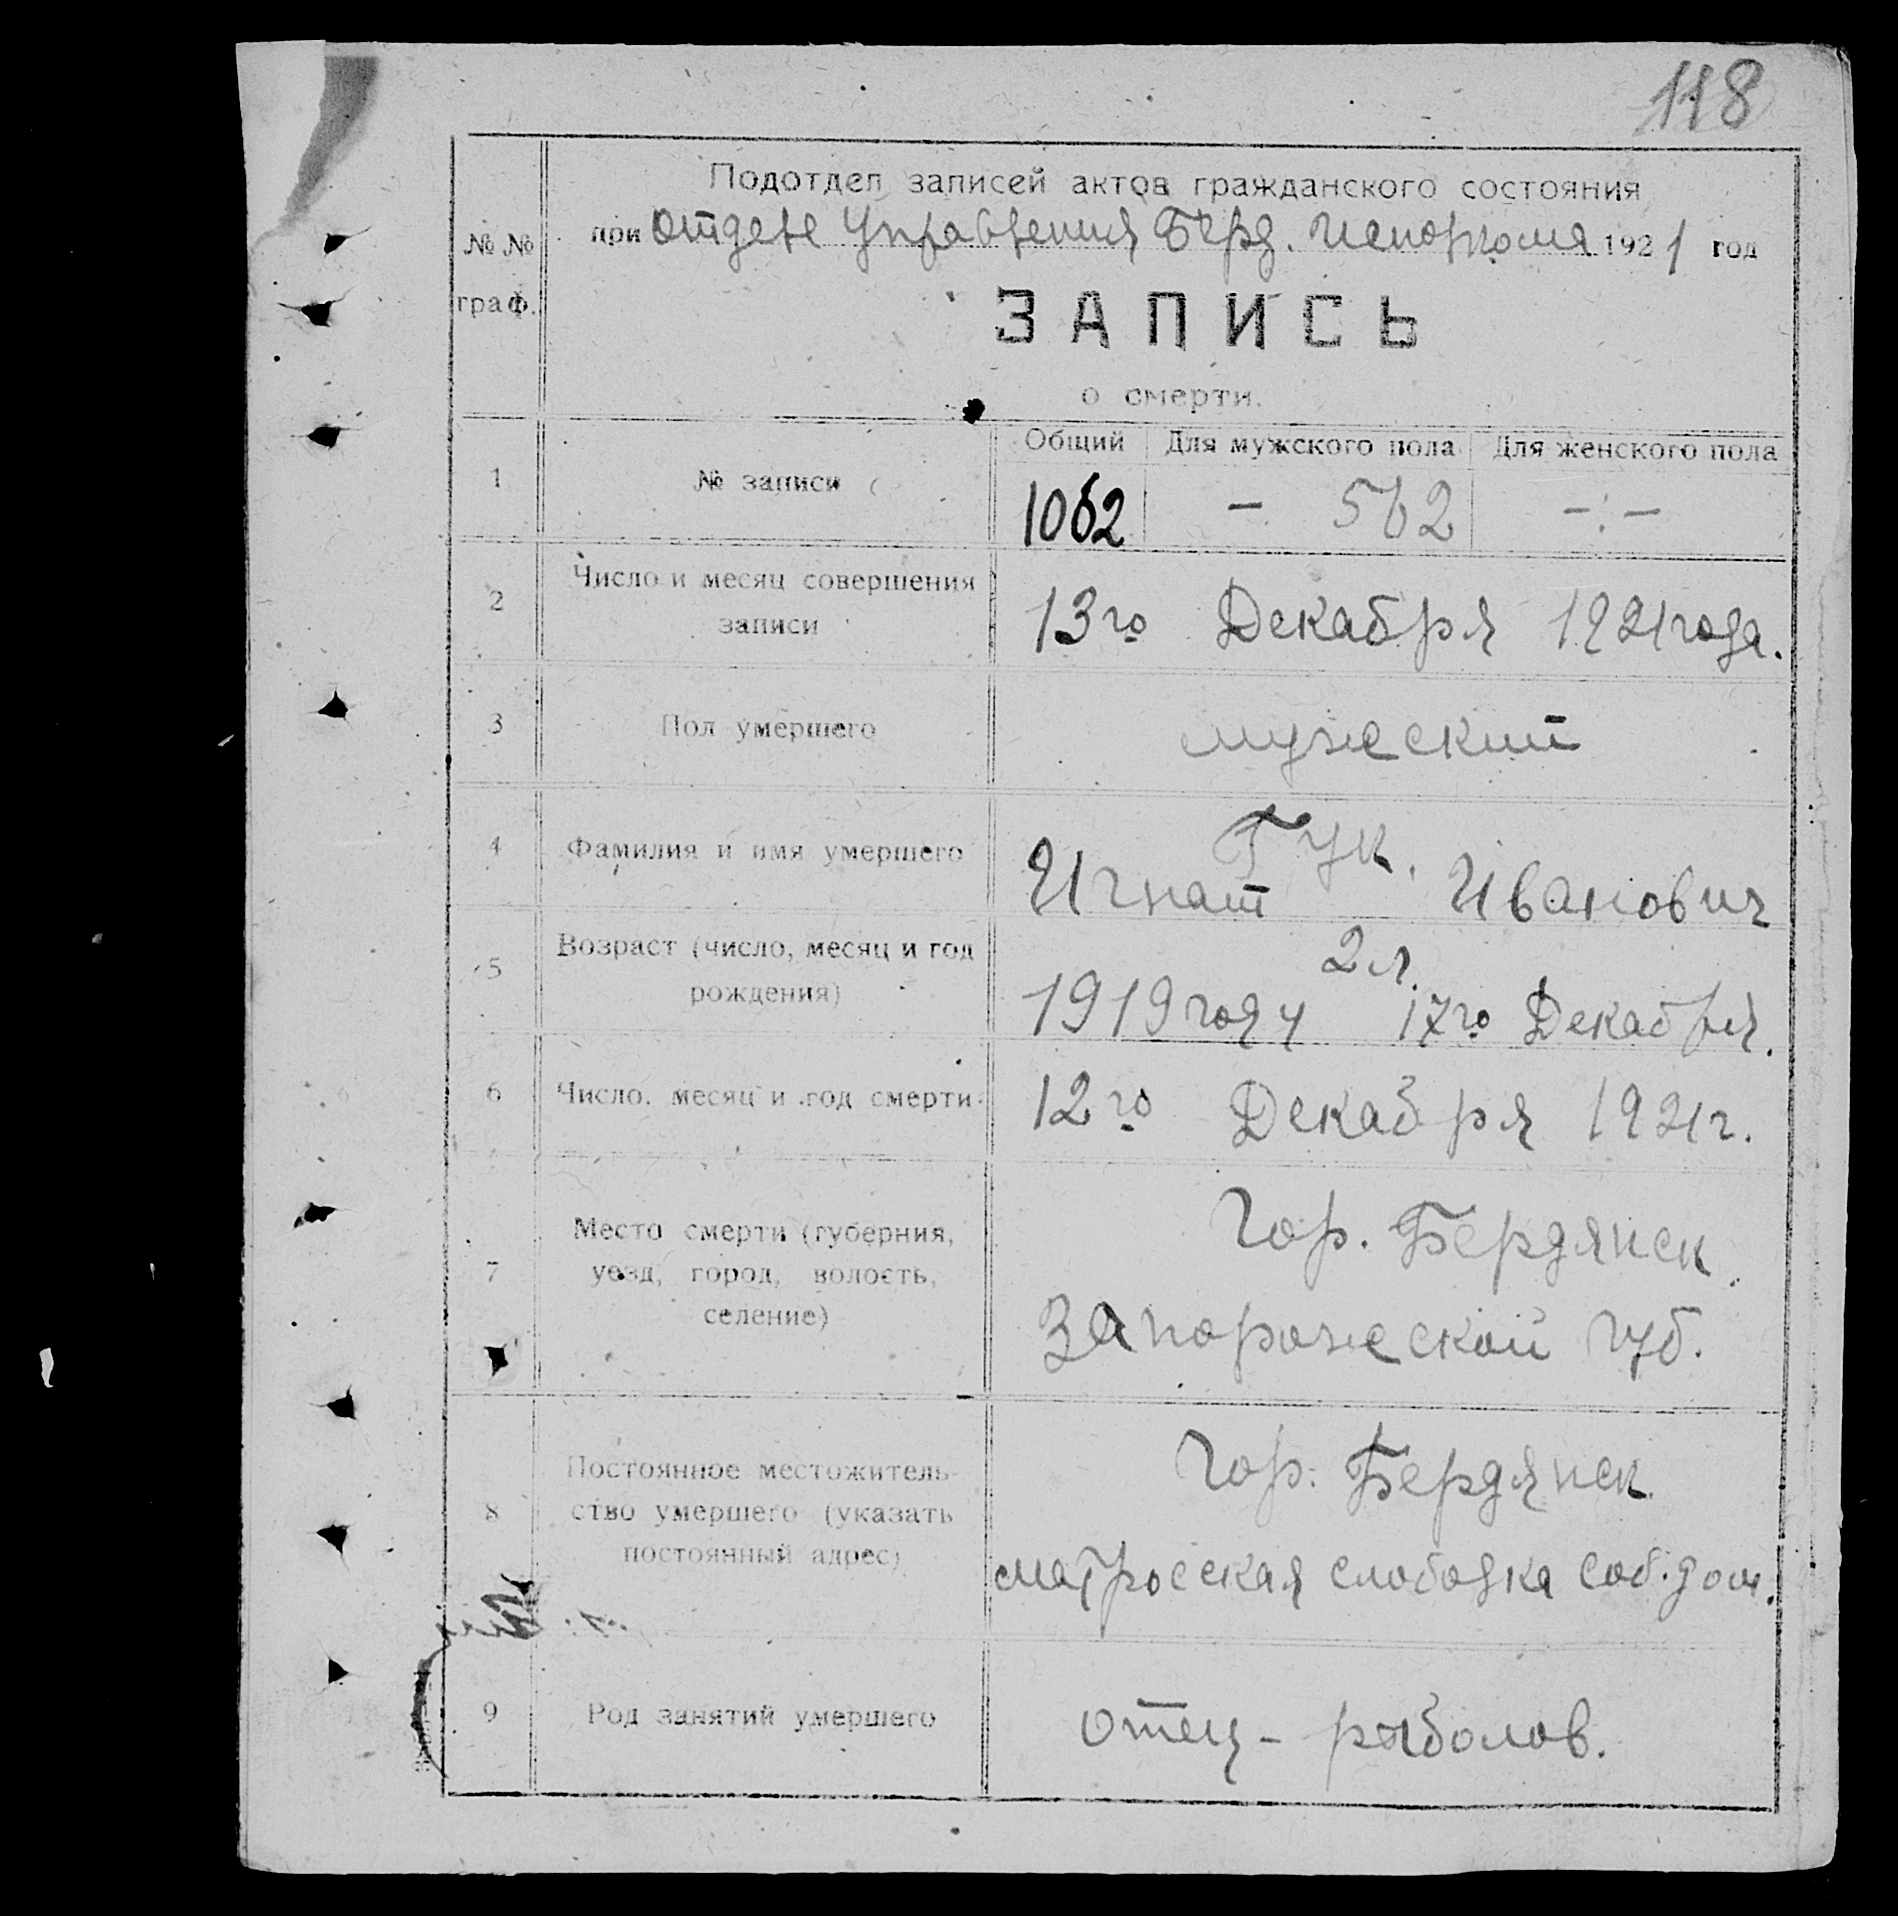 118
Подотдел записей актов гражданского состояния
при отделе Управления Берд. Исполкома 1921 год
№ № граф.
ЗАПИСЬ
о смерти.
Общий Для мужского пола Для женского пола
1 № записи 1062 – 562 –:–
2 Число и месяц совершения
записи 13го Декабря 1921 года.
3 Пол умершего мужеский
Гук.
4 Фамилия и имя умершего Игнат Иванович
5 Возраст (число, месяц и год 2 л.
рождения) 1919 году 17го Декабря.
6 Число, месяц и год смерти 12го Декабря 1921 г.
Место смерти (губерния, Гор. Бердянск.
7 уезд, город, волость,
селение) Запорожеской губ.
Постоянное местожитель- Гор. Бердянск.
8 ство умершего (указать
постоянный адрес) матросская слободка соб. дом.
9 Род занятий умершего отец – рыболов.